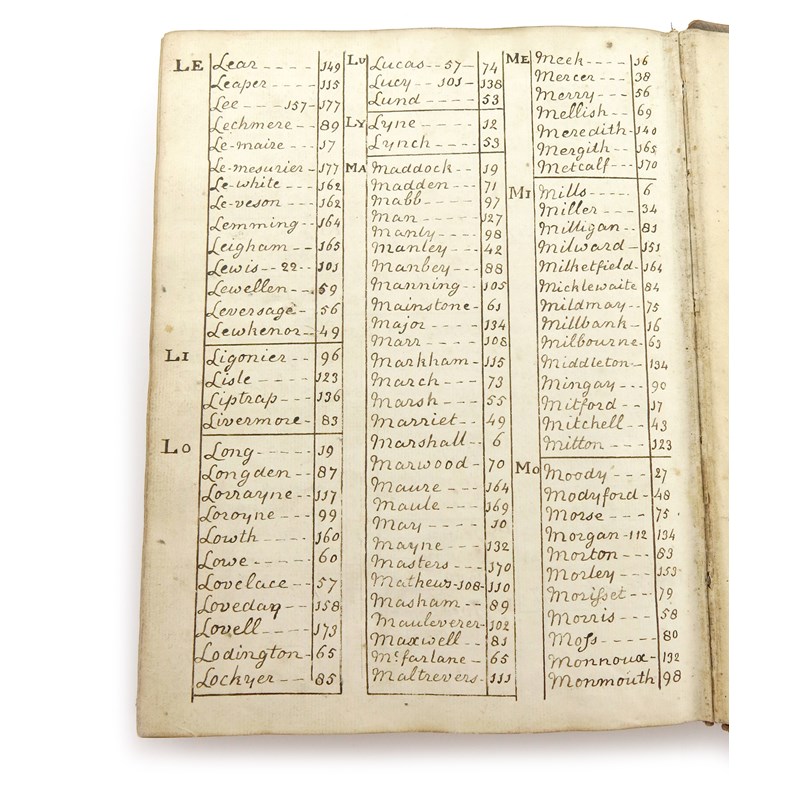 LE Lear - - - - 149
Leaper - - - 115
Lee - - - 157 - 177
Lechmere - - 89
Le-maire - - - 17
Le-mesurier - 177
Le-white - - - 162
Le-veson - - - 162
Lemming - - 164
Leigham - - - 165
Lewis - - 22 - - 101
Lewellen - - 59
Leversage - 56
Lewkenor - - 49
LI Ligonier - - 96
Lisle - - - - 123
Liptrap - - - 136
Livermore - 83
LO Long - - - - 19
Longden - - 87
Lorrayne - - 117
Loroyne - - - 99
Lowth - - - - 160
Lowe - - - - 60
Lovelace - - - 57
Loveday - - - 158
Lovell - - - - 173
Lodington - 65
Lockyer - - - 85
LU Lucas - - 57 - 74
Lucy - - 101 - 138
Lund - - - - 53
LY Lyne - - - - 12
Lynch - - - - 53
MA Maddock - - 19
Madden - - - 71
Mabb - - - - 97
Man - - - - 127
Manly - - - - 98
Manley - - - 42
Manbey - - - 88
Manning - - 105
Mainstone - 61
Major - - - - 134
Marr - - - - 108
Markham - 115
March - - - - 73
Marsh - - - - 55
Marriet - - - 49
Marshall - - 6
Marwood - 70
Maure - - - 164
Maule - - - 169
May - - - - 10
Mayne - - - 132
Masters - - - 170
Mathews - 108 - 110
Masham - - - 89
Mauleverer - 102
Maxwell - - 81
Mcfarlane - 65
Maltrevers - 111
ME Meek - - - - 16
Mercer - - - 38
Merry - - - - 56
Mellish - - - 69
Meredith - 140
Mergith - - - 165
Metcalf - - - 170
MI Mills - - - - - 6
Miller - - - 34
Milligan - - 81
Milward - 151
Milhetfield - 164
Micklewaite 84
Mildmay - - 75
Millbank - - 16
Milbourne - 63
Middleton - - 134
Mingay - - - 90
Mitford - - - 17
Mitchell - - 43
Mitton - - - 123
MO Moody - - - 27
Modyford - 48
Morse - - - 75
Morgan - 112 134
Morton - - - 83
Morley - - - 153
Moriſset - - - 79
Morris - - - 58
Moſs - - - - - 80
Monnoux - 132
Monmouth 98